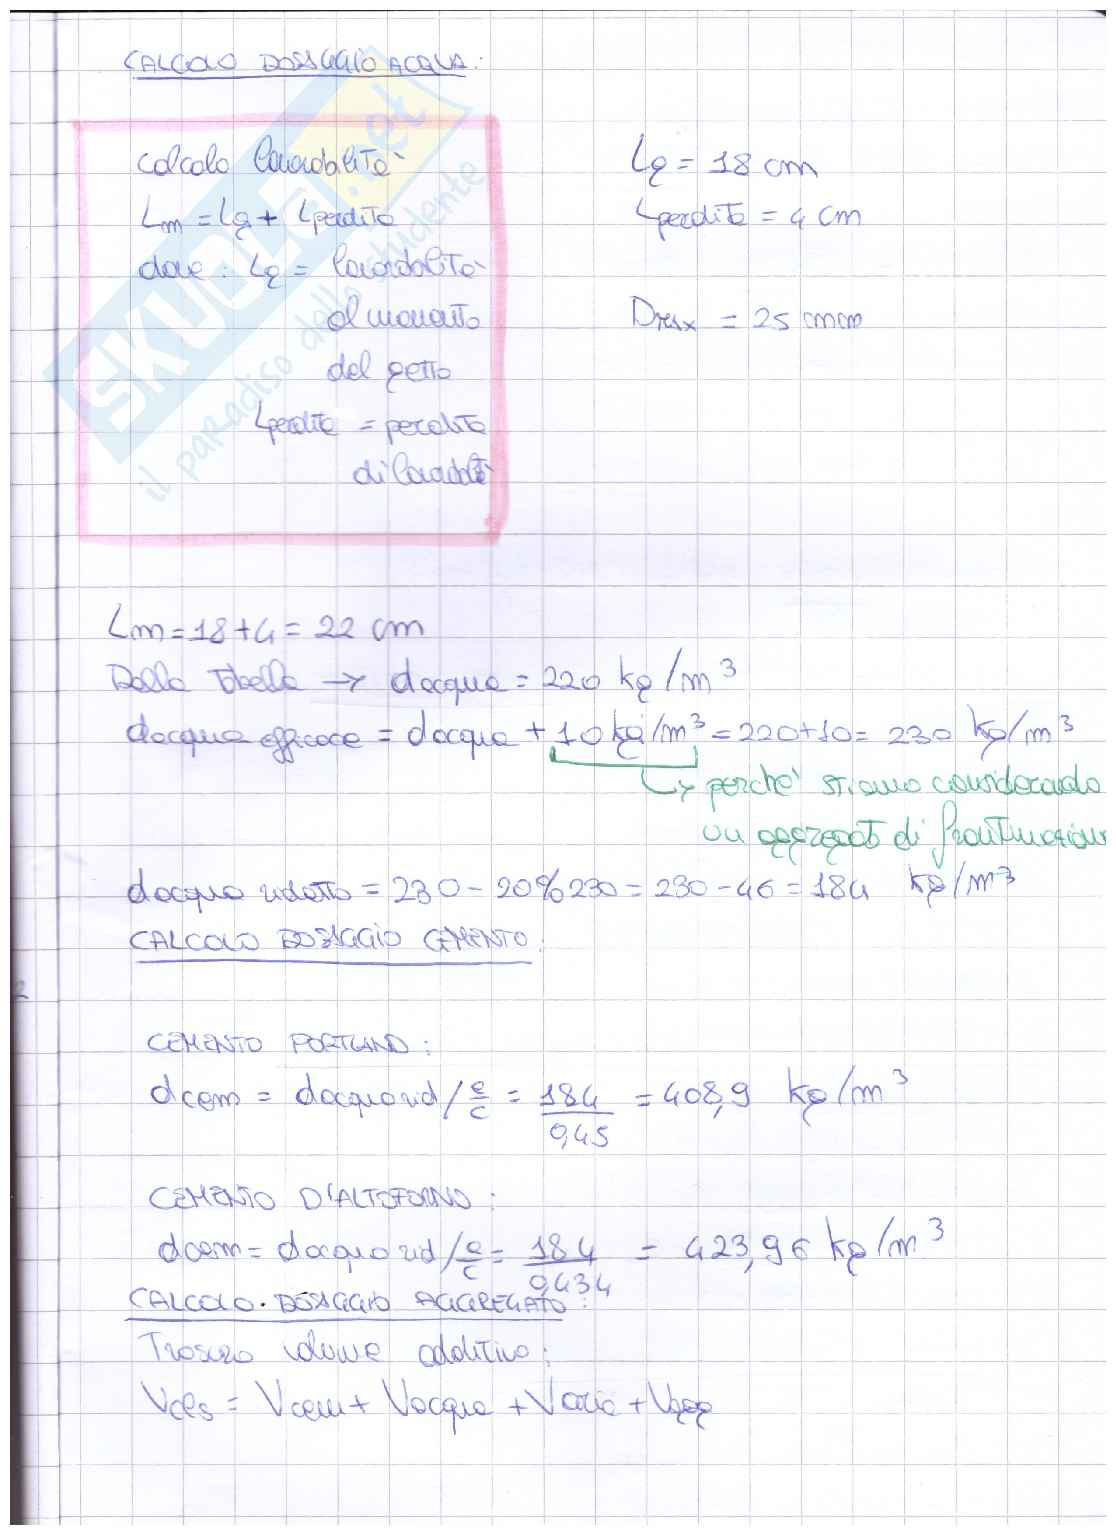 CALCOLO DOSAGGIO ACQUA:
calcolo lavorabilità
Lm = Lg + Lperdita
dove: Lg = lavorabilità
al momento
del getto
Lperdita = perdita
di lavorabilità
Lg = 18 cm
Lperdita = 4 cm
Dmax = 25 mm
Lm = 18 + 4 = 22 cm
Dalla Tabella → dacqua = 220 kg/m³
dacqua efficace = dacqua + 10 kg/m³ = 220+10 = 230 kg/m³
↳ perché stiamo considerando
un aggregato di frantumazione
dacqua ridotto = 230 - 20% 230 = 230 - 46 = 184 kg/m³
CALCOLO DOSAGGIO CEMENTO:
2
CEMENTO PORTLAND:
dcem = dacqua rid / a/c = 184/0,45 = 408,9 kg/m³
CEMENTO D'ALTOFORNO:
dcem = dacqua rid / a/c = 184/0,434 = 423,96 kg/m³
CALCOLO DOSAGGIO AGGREGATO:
Trascuro volume additivo:
Vcls = Vcem + Vacqua + Varia + Vagg
SKUOLA.net
il paradiso dello studente